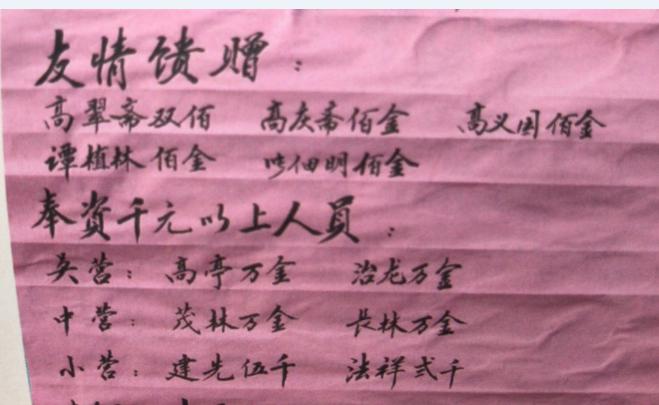 友情馈赠：
高翠斋双佰 高庆斋佰金 高义国佰金
谭植林佰金 佃明佰金
奉资千元以上人员：
吴营：高亭万金 治龙万金
中营：茂林万金 長林万金
小营：建先伍千 法祥弍千